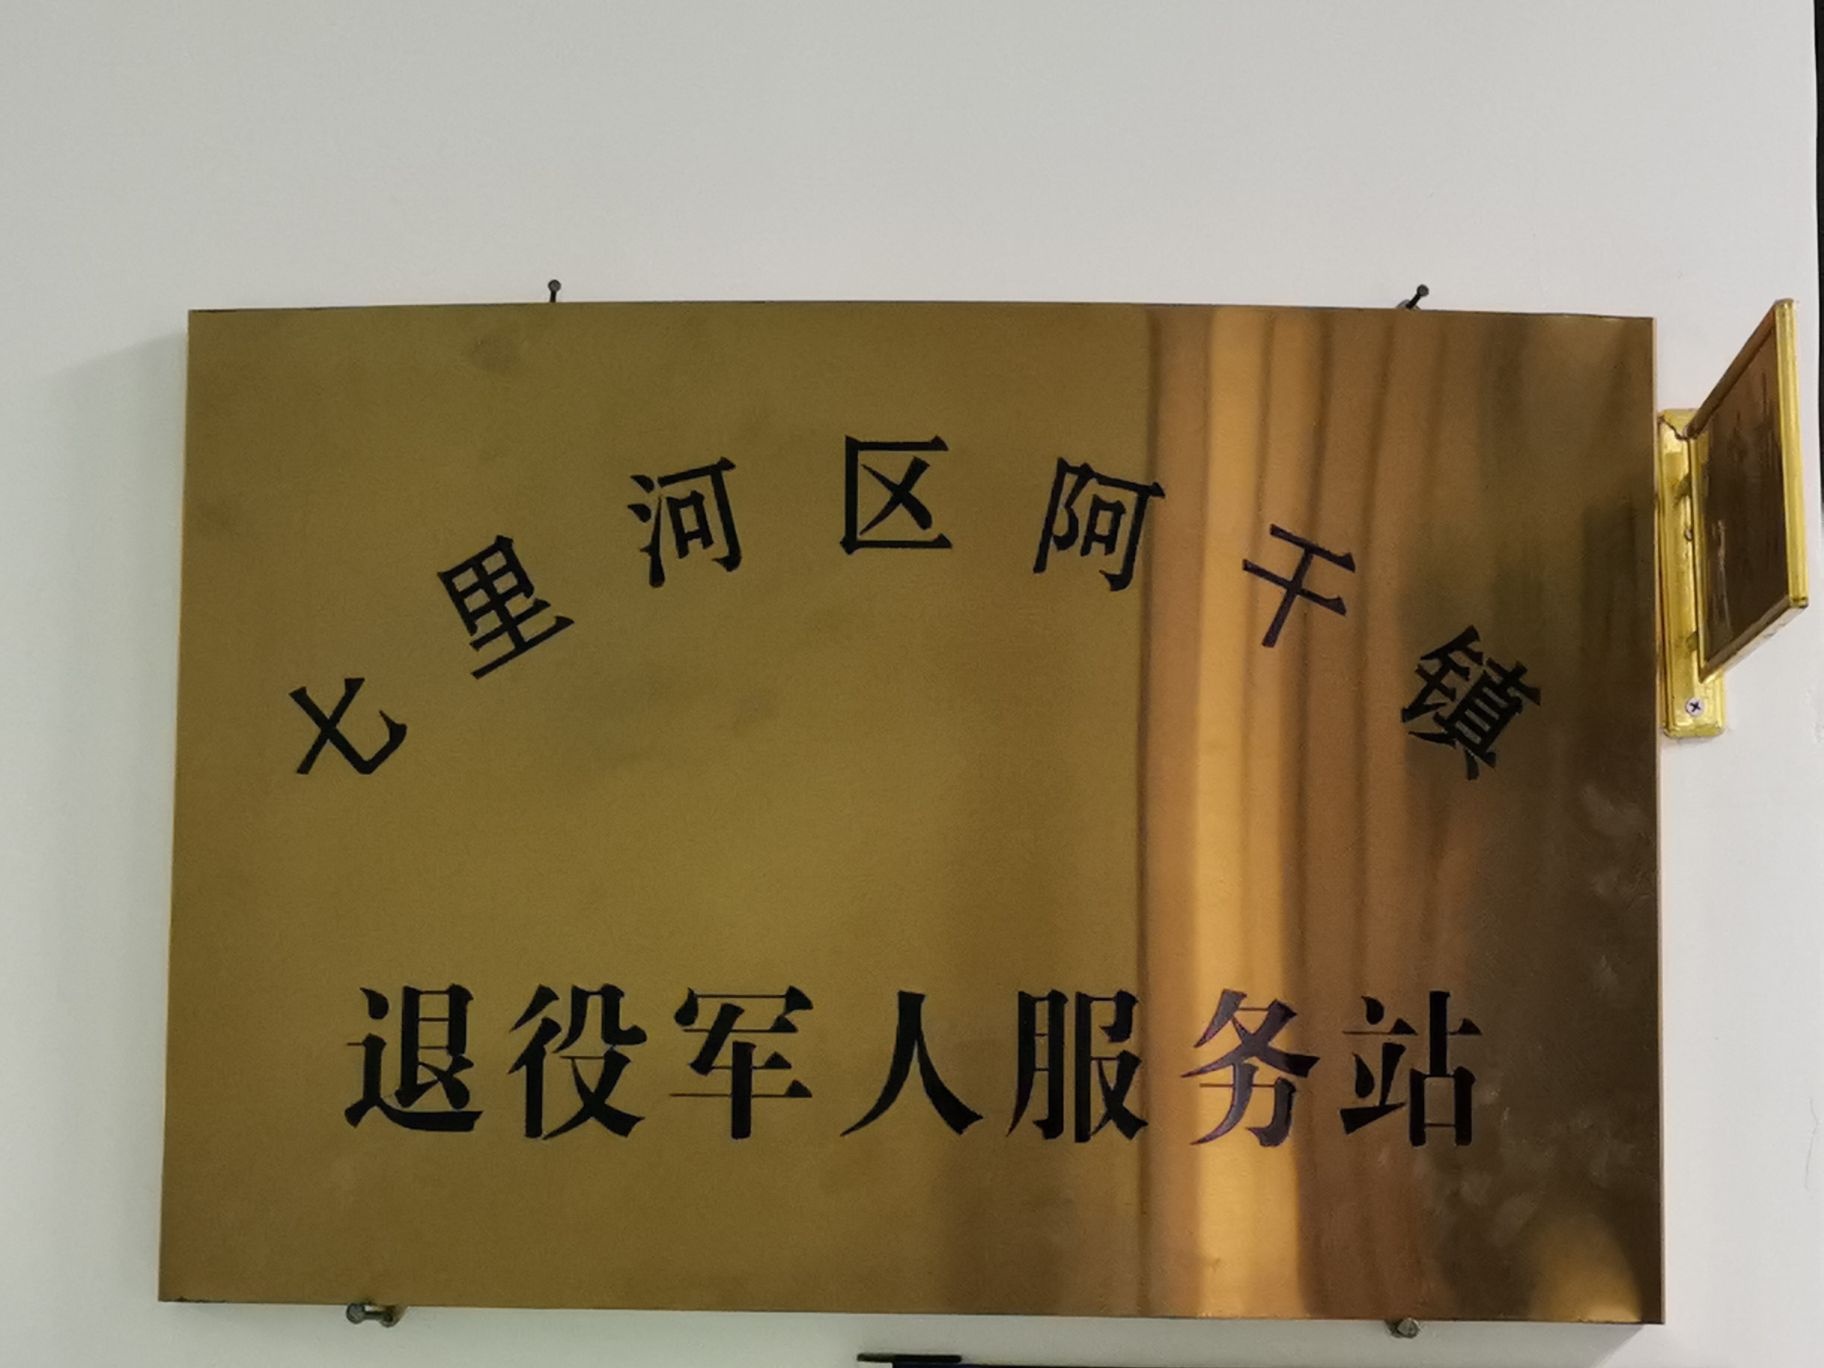 七里河区阿干镇
退役军人服务站